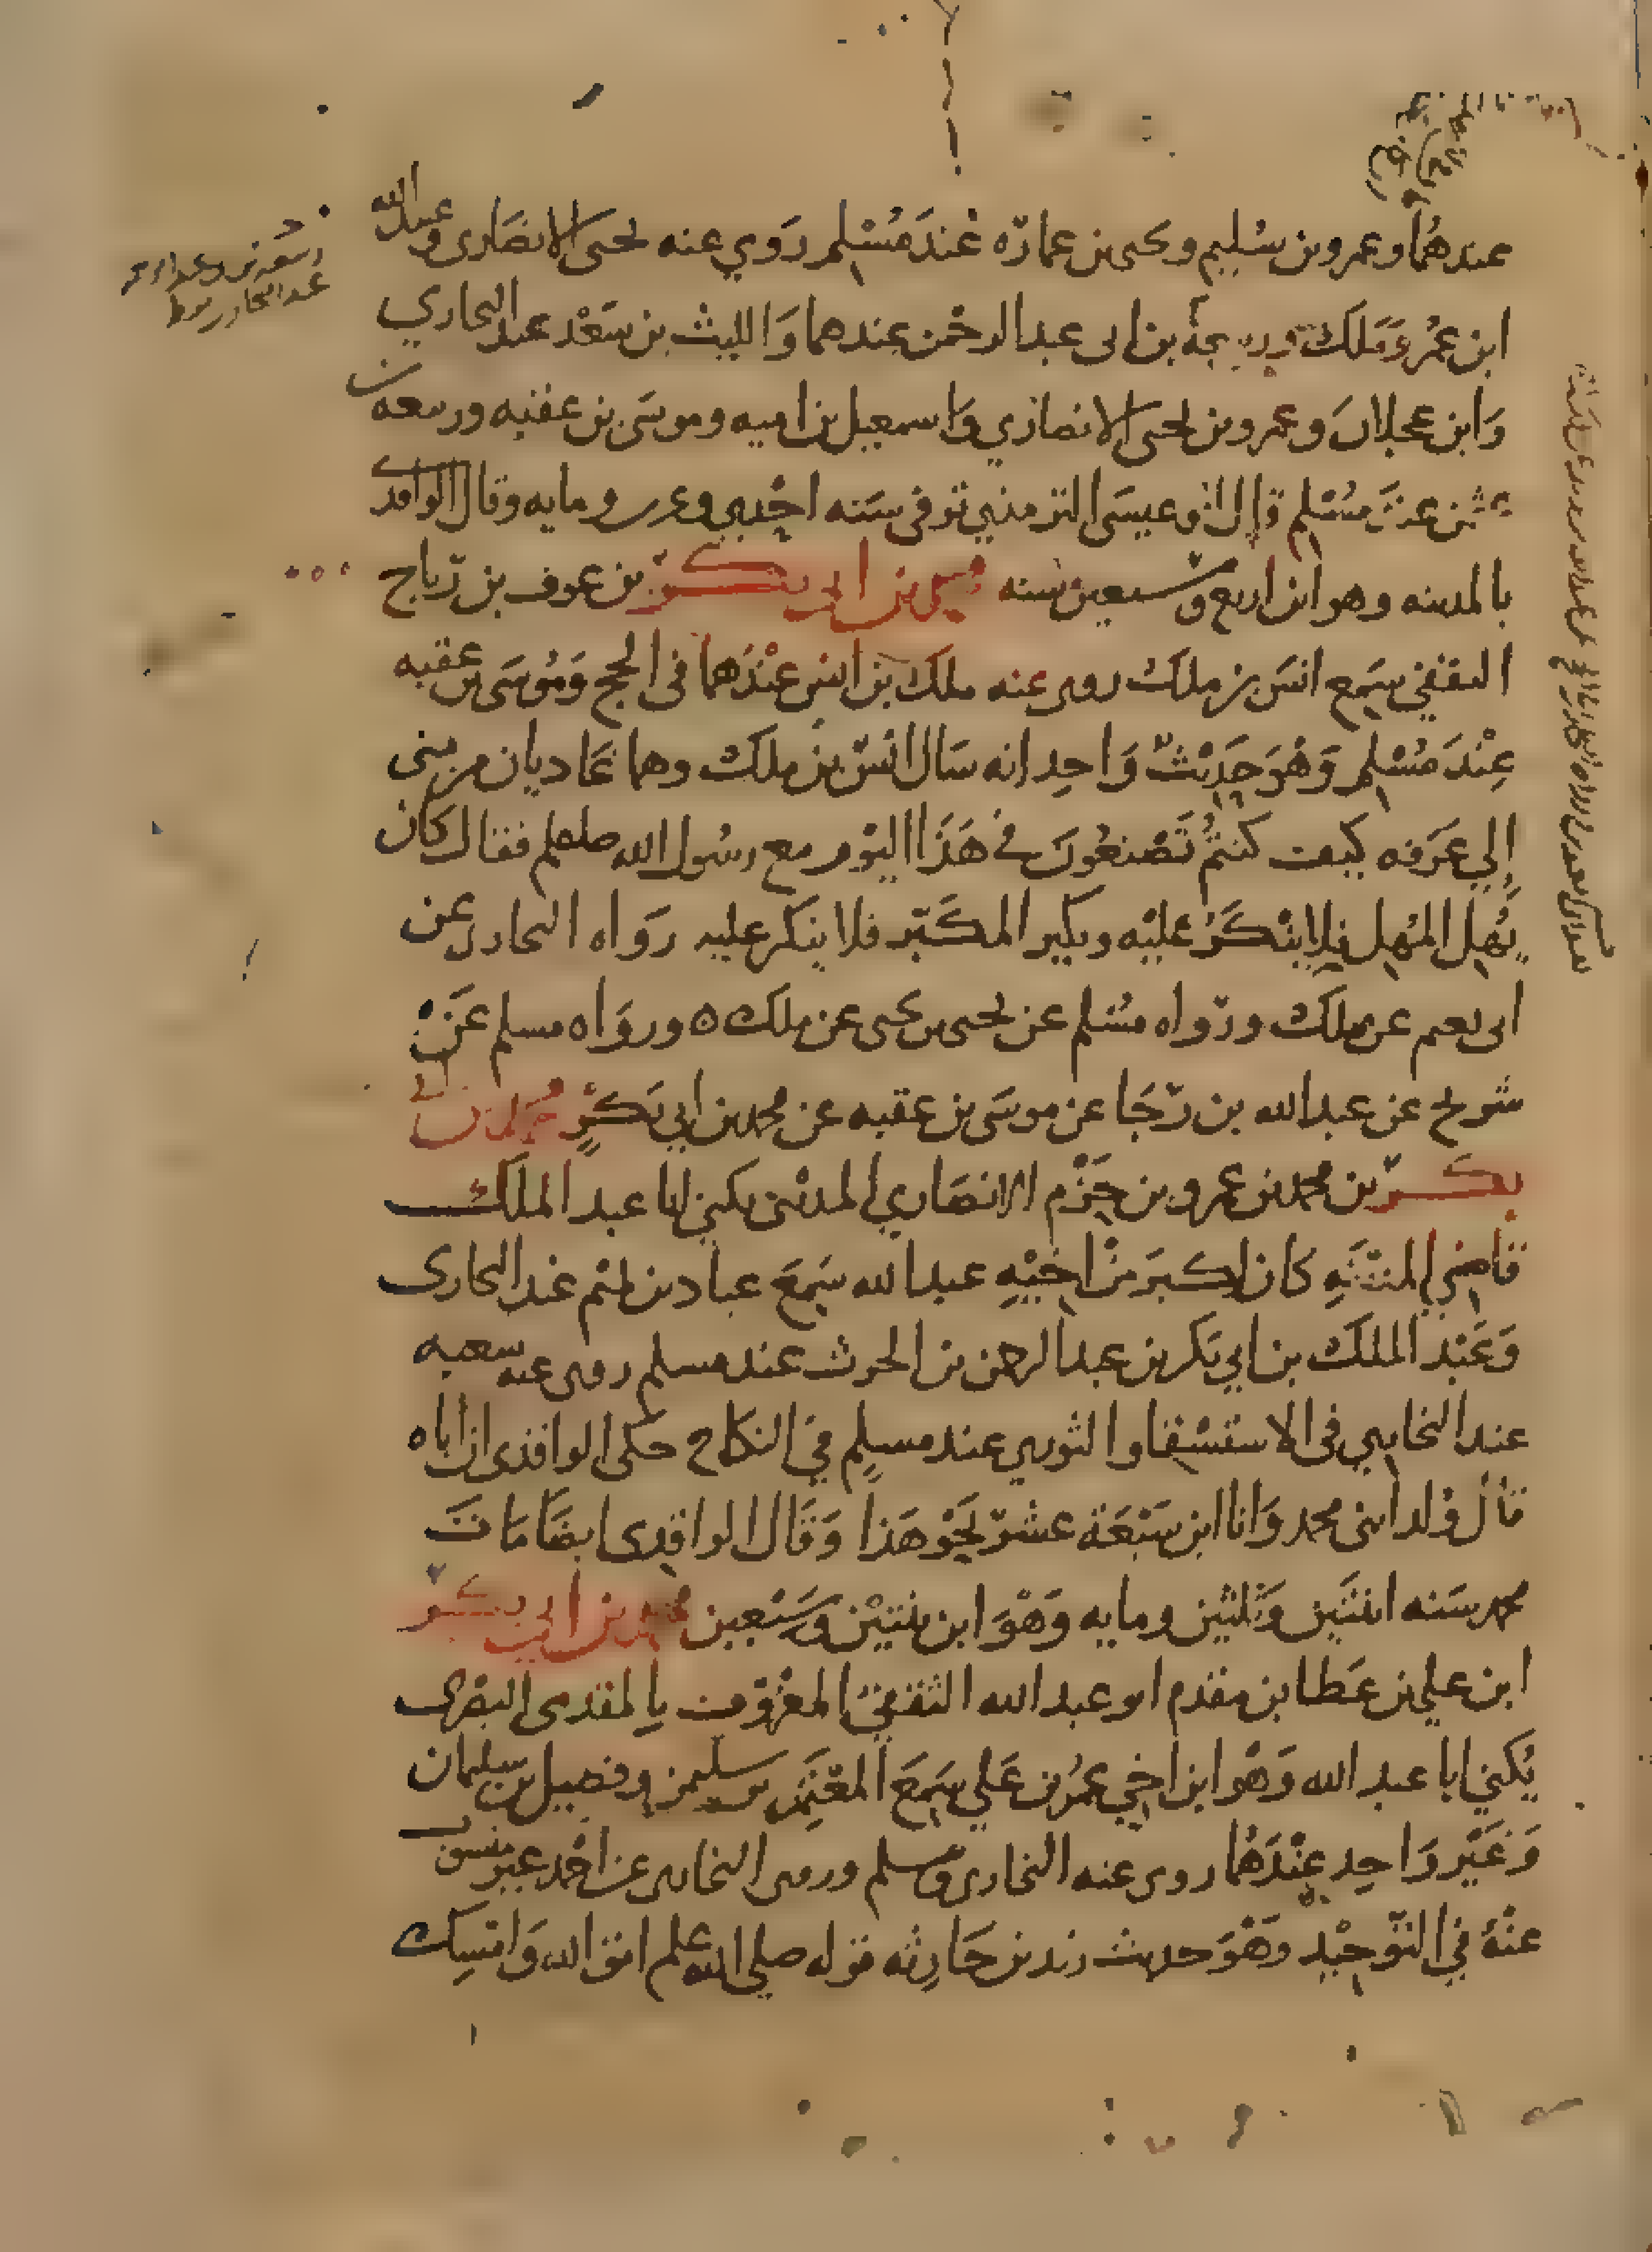 عندهما وعمرو بن سليم ويحيى بن عمارة عند مسلم روي عنه يحيى الانصاري وعبد الله
ابن عمر وملك وربيعة بن ابى عبد الرحمن عندهما والليث بن سعد عند البخاري
وابن عجلان وعمرو بن يحيى الانصاري واسمعيل بن اميه وموسى بن عقبه وربيعه بن
عثمن عند مسلم قال ابو عيسى الترمذي توفى سنه احدي وعشرين ومايه وقال الواقدي
بالمدينه وهو ابن اربع وسبعين سنه محمد بن ابي بكر بن عوف بن رباح
الثقفي سمع انس بن ملك روى عنه ملك بن انس عندهما في الحج وموسى بن عقبه
عند مسلم وهو حديث واحد انه سال انس بن ملك وهما غاديان من منى
إلي عرفه كيف كنتم تصنعون في هذا اليوم مع رسول الله صلعلم فقال كان
يهل المهل فلا ينكر عليه ويكبر المكبر فلا ينكر عليه رواه البخاري عن
ابى نعيم عن ملك ورواه مسلم عن يحيى بن يحيى عن ملك ه ورواه مسلم عن
شريح عن عبد الله بن رجا عن موسى بن عقبه عن محمد بن ابي بكر محمد بن ابي
بكر بن محمد بن عمرو بن حزم الانصاري المدني يكني ابا عبد الملك
قاضي المدينه كان اكبر من اخيه عبد الله سمع عباد بن تميم عند البخارى
وعبد الملك بن ابي بكر بن عبد الرحمن بن الحرث عند مسلم روى عنه شعبه
عند البخاري في الاستسقا والثوري عند مسلم في النكاح حكى الواقدى ان اباه
قال ولد ابنى محمد وانا ابن سبعة عشر نحو هذا وقال الواقدى ايضا مات
محمد سنه اثنتين وثلثين ومايه وهو ابن ثنتين وسبعين محمد بن ابي بكر
ابن علي بن عطا بن مقدم ابو عبد الله الثقفي المعروف بالمقدمى البصرى
يكني ابا عبد الله وهو ابن اخي عمر بن علي سمع المعتمر بن سليمن وفضيل بن سليمان
وغير واحد عندهما روى عنه البخارى ومسلم وروى البخارى عن احمد غير منسوب
عنه في التوحيد وهو حديث زيد بن حارثه قوله صلي الله علم اتق الله وامسك